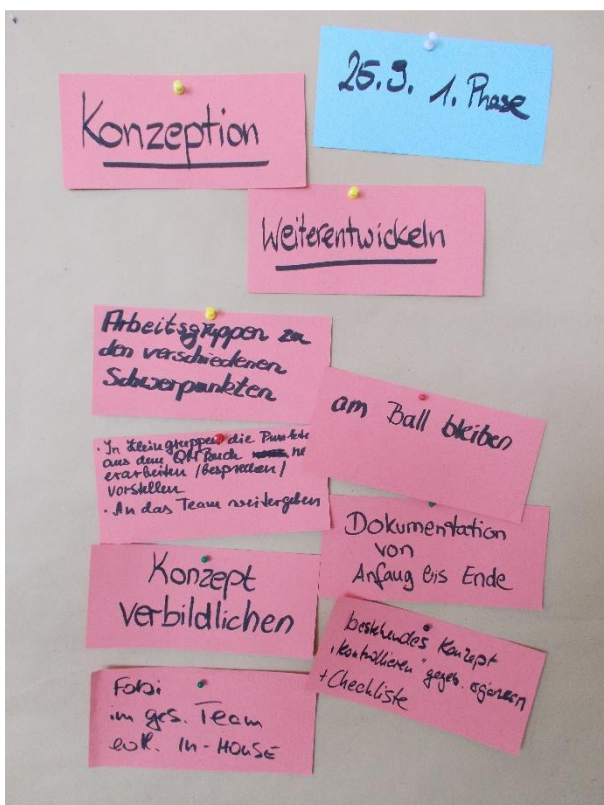 Konzeption
25.9. 1. Phase
Weiterentwickeln
Arbeitsgruppen zu
den verschiedenen
Schwerpunkten
am Ball bleiben
· In Kleingruppen die Punkte
aus dem QM Buch
erarbeiten / besprechen /
vorstellen
· An das Team weitergeben
Dokumentation
von
Anfang bis Ende
Konzept
verbildlichen
bestehendes Konzept
"kontrollieren" gegeb. ergänzen
+ Checkliste
Fobi
im ges. Team
evtl. IN-HOUSE